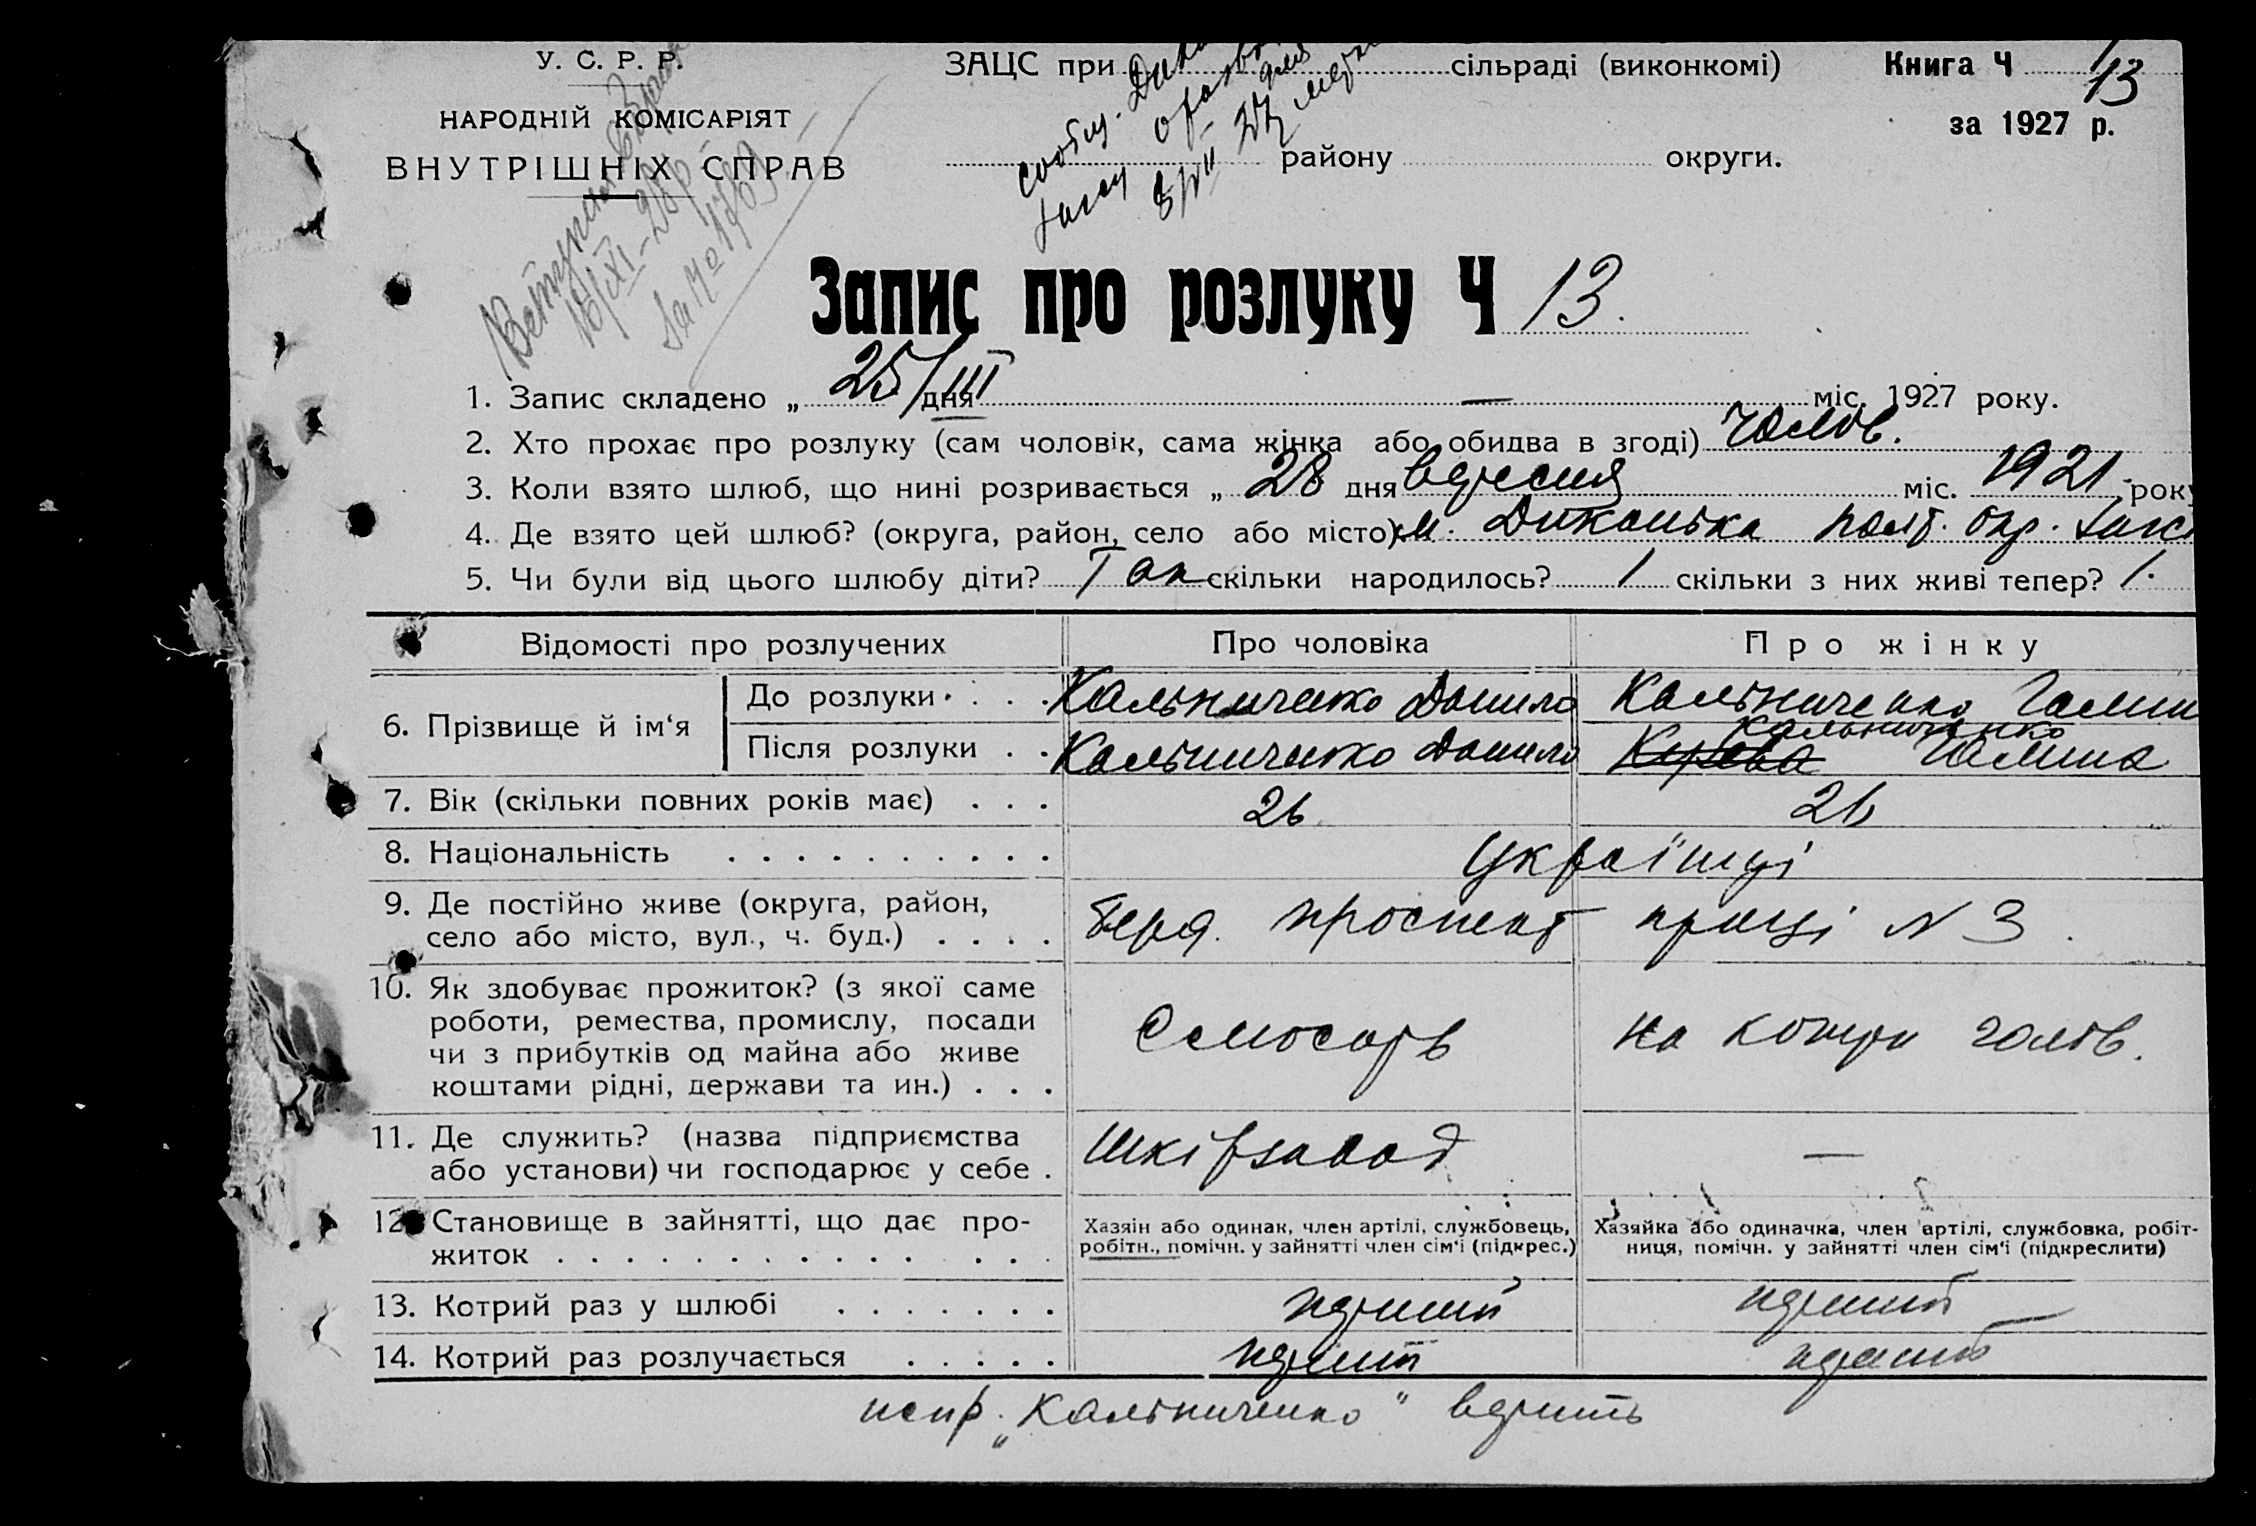 У. С. Р. Р.
НАРОДНІЙ КОМІСАРІЯТ
ВНУТРІШНІХ СПРАВ
ЗАЦС при сільраді (виконкомі)
району округи.
Книга Ч 13
за 1927 р.
Запис про розлуку Ч 13.
1. Запис складено „ 25/III дня — міс. 1927 року.
2. Хто прохає про розлуку (сам чоловік, сама жінка або обидва в згоді) чолов.
3. Коли взято шлюб, що нині розривається „ 28 дня вересня міс. 1921 рок
4. Де взято цей шлюб? (округа, район, село або місто) м. Диканька полт. окр.
5. Чи були від цього шлюбу діти? Так скільки народилось? 1 скільки з них живі тепер? 1.
Відомості про розлучених Про чоловіка Про жінку
6. Прізвище й ім‘я До розлуки . . . Кальниченко Данило Кальниченко Галин
Кальниченко
Після розлуки . . Кальниченко Данило Галина
7. Вік (скільки повних років має) . . . 26 26
8. Національність . . . . . . . . . . українці
9. Де постійно живе (округа, район,
село або місто, вул., ч. буд.) . . . . проспект праці N 3.
10. Як здобуває прожиток? (з якої саме
роботи, ремества, промислу, посади
чи з прибутків од майна або живе
коштами рідні, держави та ин.) . . . на кошти чолов.
11. Де служить? (назва підприємства
або установи) чи господарює у себе . Шкірзавод —
12. Становище в зайнятті, що дає про-
житок . . . . . . . . . . . . . .
Хазяїн або одинак, член артілі, службовець,
робітн., помічн. у зайнятті член сім‘ї (підкрес.)
Хазяйка або одиначка, член артілі, службовка, робіт-
ниця, помічн. у зайнятті член сім‘ї (підкреслити)
13. Котрий раз у шлюбі . . . . . . . перший перший
14. Котрий раз розлучається . . . . . перший перший
испр. „Кальниченко" верить